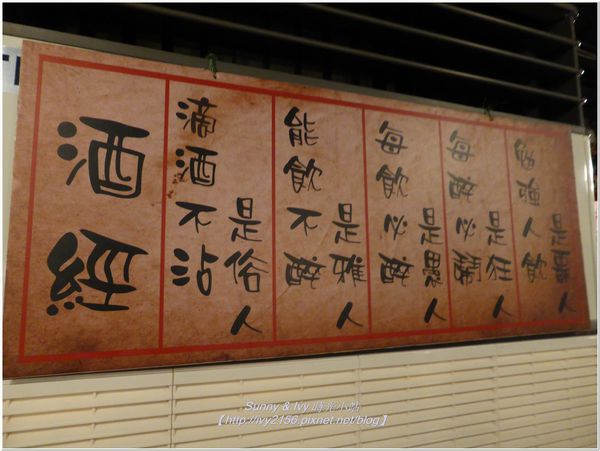 酒經
滴酒不沾
是俗人
能飲不醉
是雅人
每飲必醉
是愚人
每醉必鬧
是狂人
勉強人飲
是惡人
Sunny & Ivy 時光小站
【http://ivy2156.pixnet.net/blog】